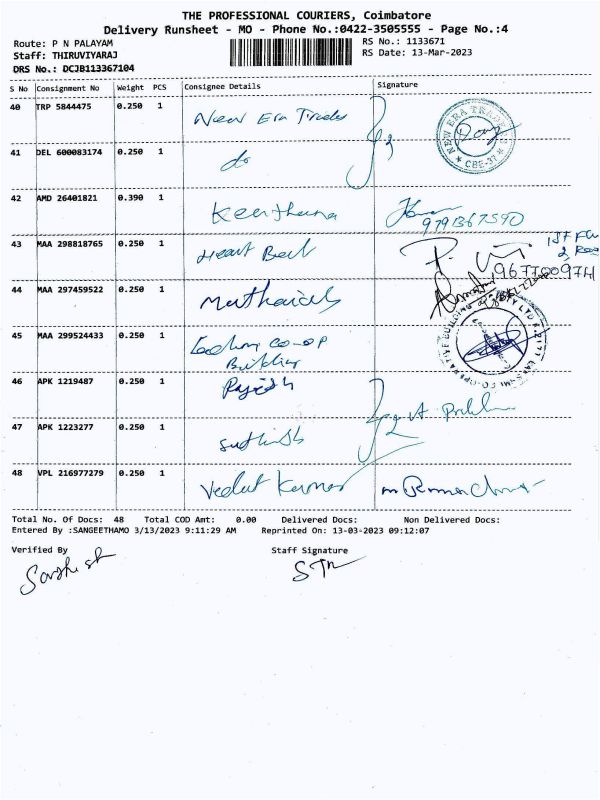 THE PROFESSIONAL COURIERS, Coimbatore
Delivery Runsheet - MO - Phone No.:0422-3505555 - Page No.:4
Route: P N PALAYAM
RS No.: 1133671
Staff: THIRUVIYARAJ
RS Date: 13-Mar-2023
DRS No.: DCJB113367104
S No Consignment No Weight PCS Consignee Details Signature
40 TRP 5844475 0.250 1 New Era Trades
NEW ERA TRADE CBE-37
41 DEL 600083174 0.250 1 do
42 AMD 26401821 0.390 1 Keerthana 9791367590
43 MAA 298818765 0.250 1 Heart Beat
9677009741
44 MAA 297459522 0.250 1
45 MAA 299524433 0.250 1 co-op
Building
46 APK 1219487 0.250 1 Rajesh
47 APK 1223277 0.250 1
48 VPL 216977279 0.250 1 Kumar
Total No. Of Docs: 48 Total COD Amt: 0.00 Delivered Docs: Non Delivered Docs:
Entered By :SANGEETHAMO 3/13/2023 9:11:29 AM Reprinted On: 13-03-2023 09:12:07
Verified By Staff Signature